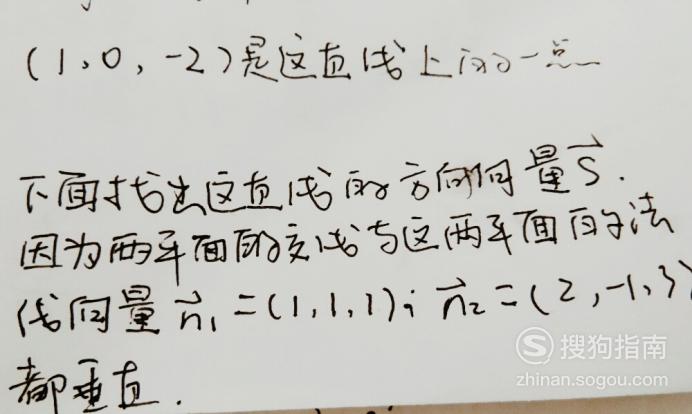 (1,0,-2)是这直线上的一点
下面找出这直线的方向向量s⃗.
因为两平面的交线与这两平面的法
线向量n⃗₁=(1,1,1),n⃗₂=(2,-1,3)
都垂直.
S 搜狗指南
zhinan.sogou.com